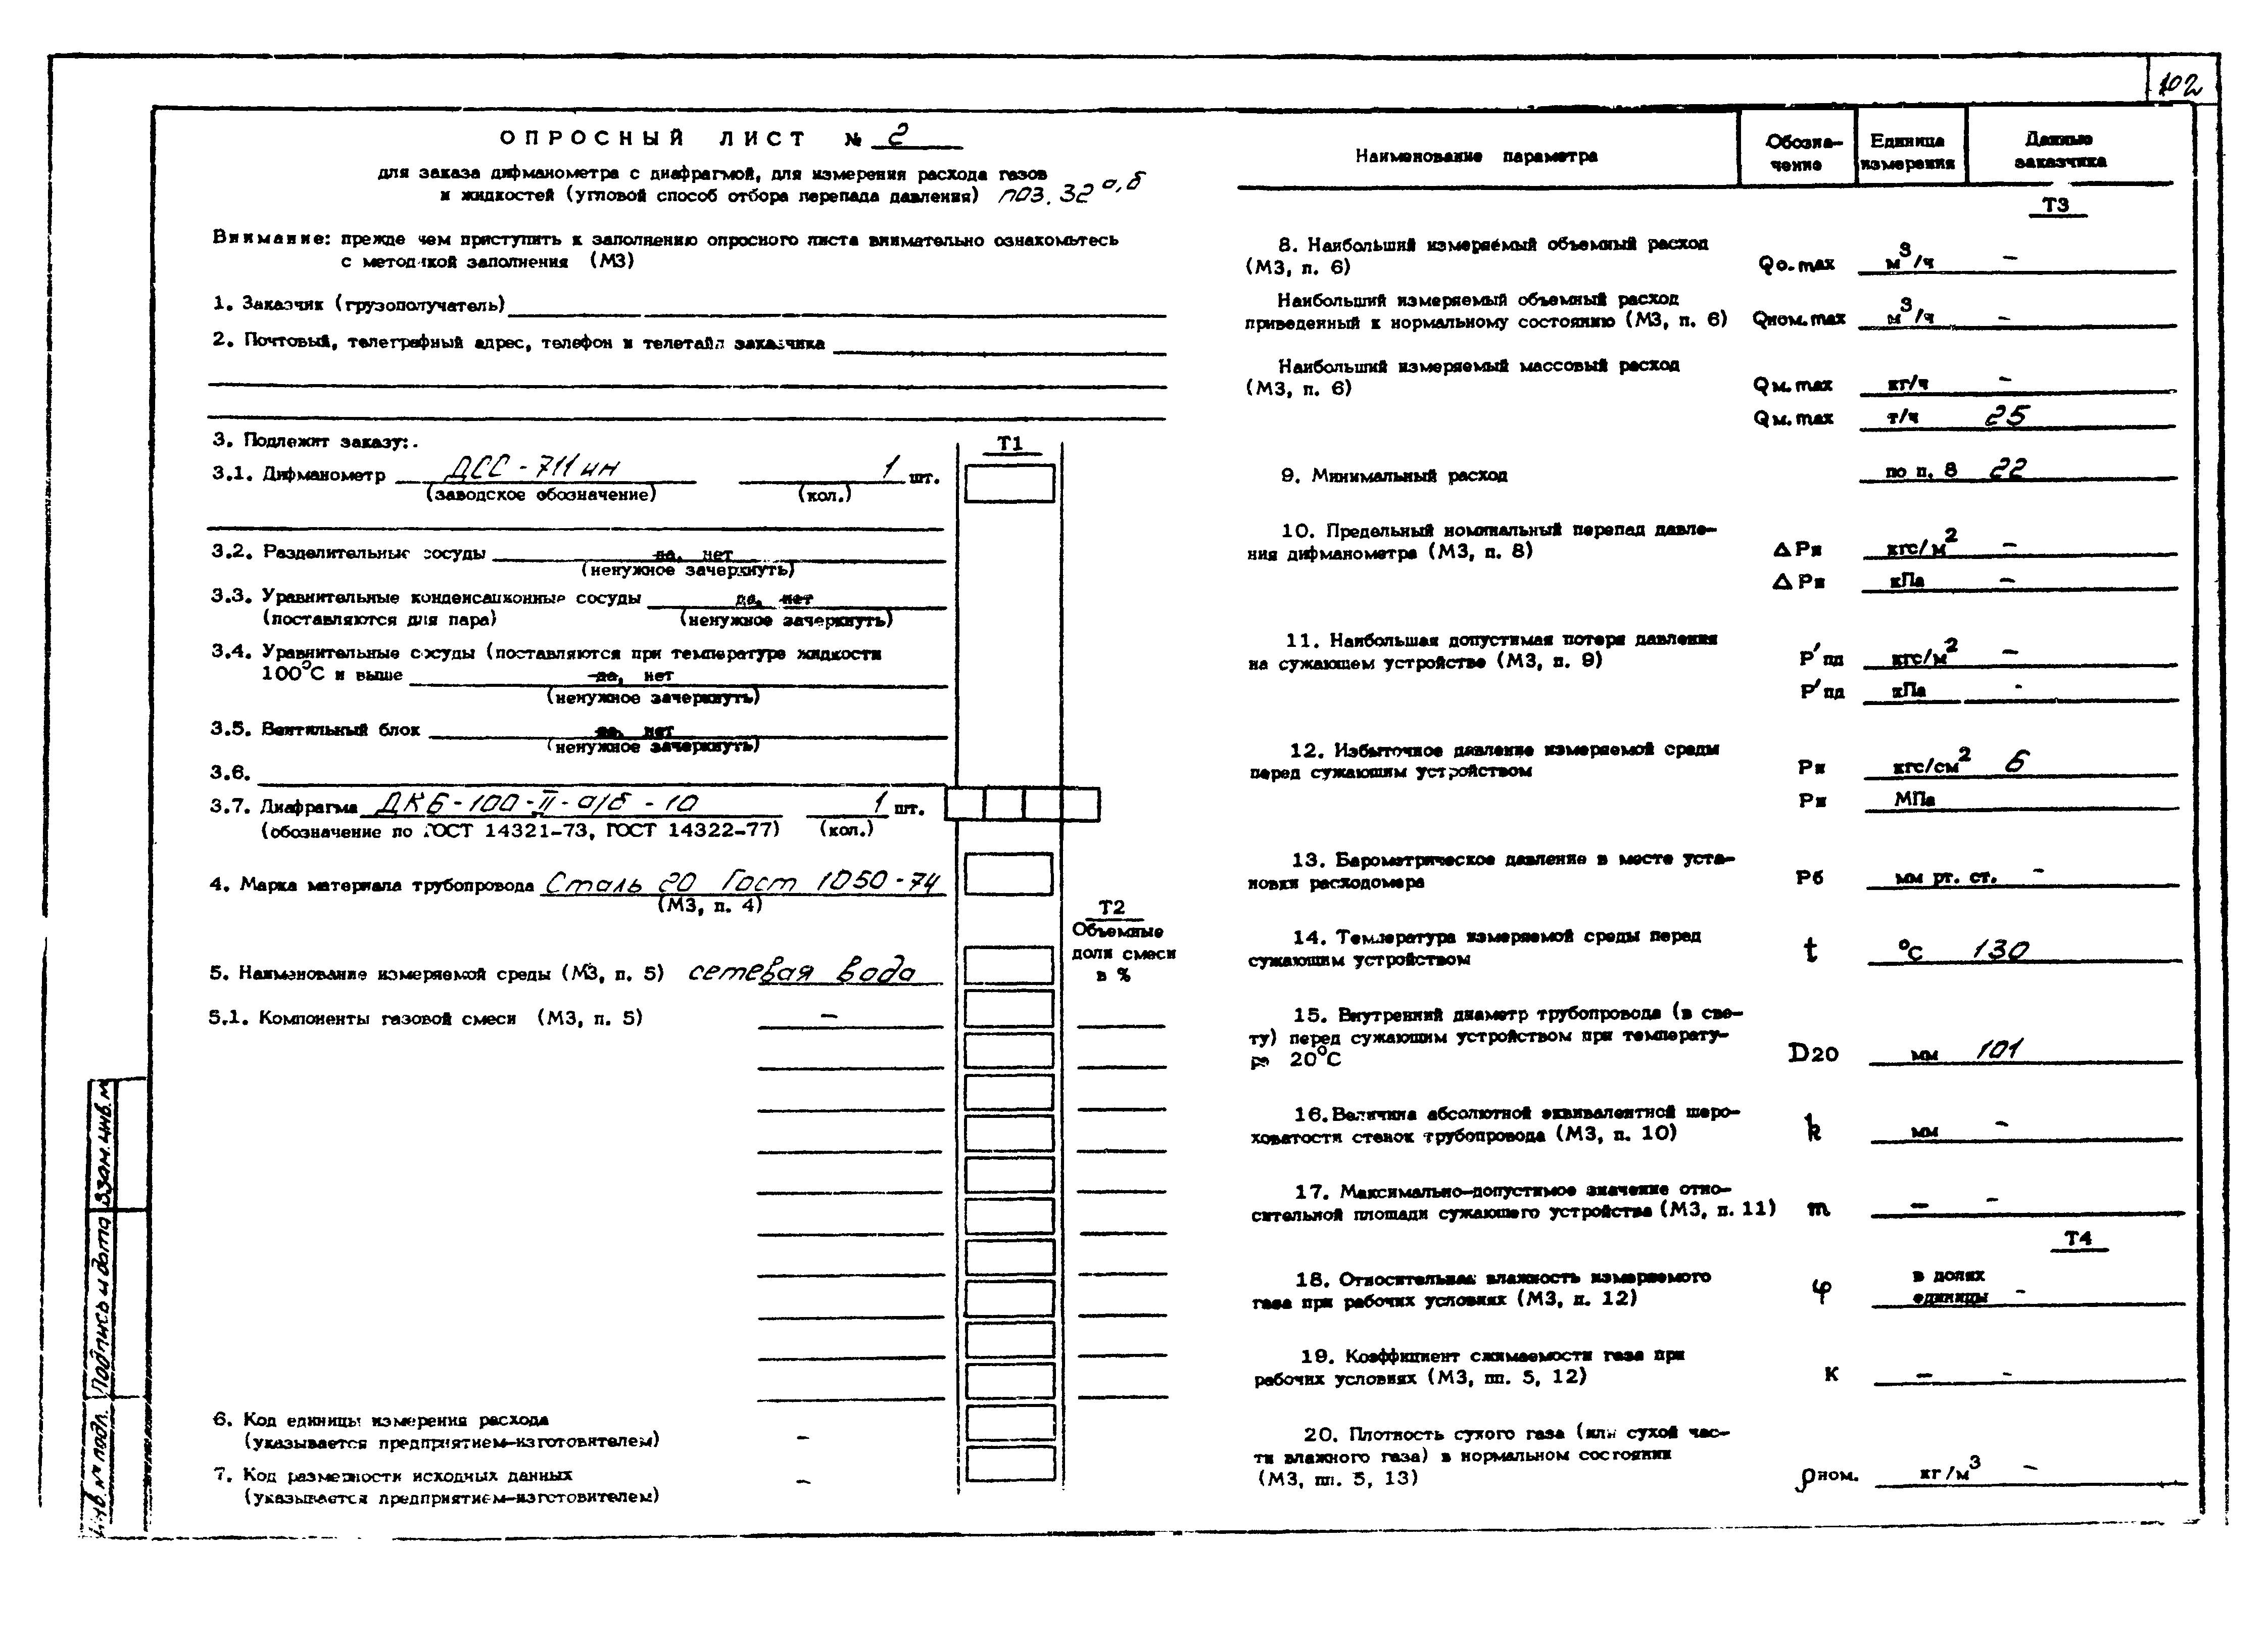 102
ОПРОСНЫЙ ЛИСТ № 2
для заказа дифманометра с диафрагмой, для измерения расхода газов
и жидкостей (угловой способ отбора перепада давления) поз. 32 а,б
Внимание: прежде чем приступить к заполнению опросного листа внимательно ознакомьтесь
с методикой заполнения (МЗ)
1. Заказчик (грузополучатель)
2. Почтовый, телеграфный адрес, телефон и телетайп заказчика
3. Подлежит заказу:
Т1
3.1. Дифманометр ДСС-711ин 1 шт.
(заводское обозначение) (кол.)
3.2. Разделительные сосуды да, нет
(ненужное зачеркнуть)
3.3. Уравнительные конденсационные сосуды да, нет
(поставляются для пара) (ненужное зачеркнуть)
3.4. Уравнительные сосуды (поставляются при температуре жидкости
100°С и выше да, нет
(ненужное зачеркнуть)
3.5. Вентильный блок да, нет
(ненужное зачеркнуть)
3.6.
3.7. Диафрагма ДК6-100-II-а/б-10 1 шт.
(обозначение по ГОСТ 14321-73, ГОСТ 14322-77) (кол.)
4. Марка материала трубопровода Сталь 20 Гост 1050-74
(МЗ, п. 4)
Т2
Объемные
доли смеси
в %
5. Наименование измеряемой среды (МЗ, п. 5) сетевая вода
5.1. Компоненты газовой смеси (МЗ, п. 5) –
6. Код единицы измерения расхода
(указывается предприятием-изготовителем) –
7. Код размерности исходных данных
(указывается предприятием-изготовителем) –
Наименование параметра
Обозна-
чение
Единица
измерения
Данные
заказчика
Т3
8. Наибольший измеряемый объемный расход
(МЗ, п. 6) Qо.max м³/ч –
Наибольший измеряемый объемный расход
приведенный к нормальному состоянию (МЗ, п. 6) Qном.max м³/ч –
Наибольший измеряемый массовый расход
(МЗ, п. 6) Qм.max кг/ч –
Qм.max т/ч 25
9. Минимальный расход по п. 8 22
10. Предельный номинальный перепад давле-
ния дифманометра (МЗ, п. 8) ΔРн кгс/м² –
ΔРн кПа –
11. Наибольшая допустимая потеря давления
на сужающем устройстве (МЗ, п. 9) Р′пд кгс/м² –
Р′пд кПа -
12. Избыточное давление измеряемой среды
перед сужающим устройством Ри кгс/см² 6
Ри МПа
13. Барометрическое давление в месте уста-
новки расходомера Рб мм рт. ст. –
14. Температура измеряемой среды перед
сужающим устройством t °С 130
15. Внутренний диаметр трубопровода (в све-
ту) перед сужающим устройством при температу-
ре 20°С D20 мм 101
16. Величина абсолютной эквивалентной шеро-
ховатости стенок трубопровода (МЗ, п. 10) k мм –
17. Максимально-допустимое значение отно-
сительной площади сужающего устройства (МЗ, п. 11) m – –
Т4
18. Относительная влажность измеряемого
газа при рабочих условиях (МЗ, п. 12) φ в долях
единицы –
19. Коэффициент сжимаемости газа при
рабочих условиях (МЗ, пп. 5, 12) К – –
20. Плотность сухого газа (или сухой час-
ти влажного газа) в нормальном состоянии
(МЗ, пп. 5, 13) ρном. кг/м³ –
Взам. инв. №
Подпись и дата
Инв. № подл.